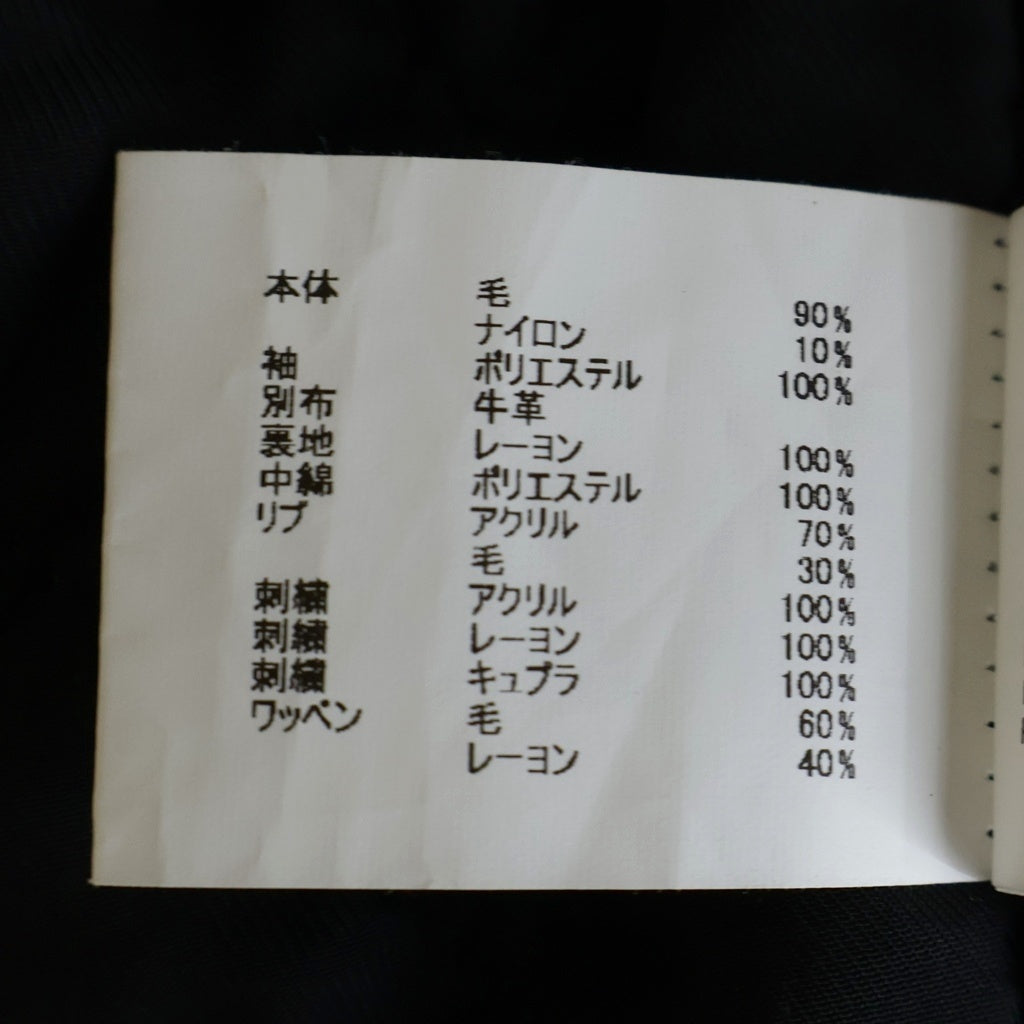 本体 毛 90%
ナイロン 10%
袖 ポリエステル 100%
別布 牛革
裏地 レーヨン 100%
中綿 ポリエステル 100%
リブ アクリル 70%
毛 30%
刺繍 アクリル 100%
刺繍 レーヨン 100%
刺繍 キュプラ 100%
ワッペン 毛 60%
レーヨン 40%